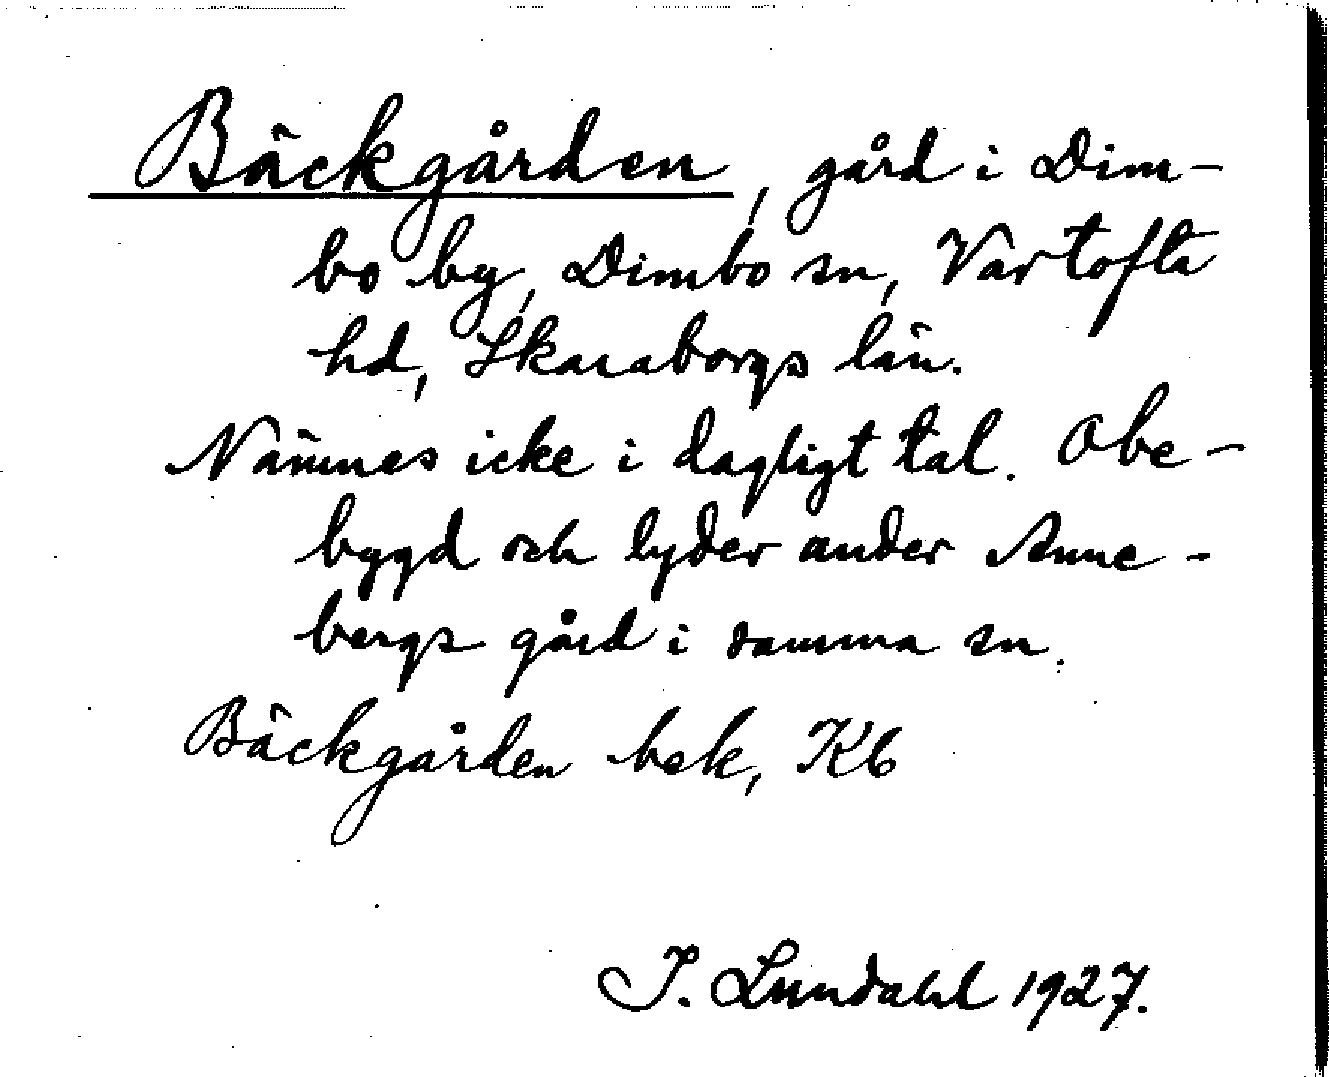 Bäckgården, gård i Dim-
bo by, Dimbo sn, Vartofta
hd, Skaraborgs län.
Nämnes icke i dagligt tal. Obe-
bygd och lyder under Anne-
bergs gård i samma sn.
Bäckgården bek, Kb
I. Lundahl 1927.